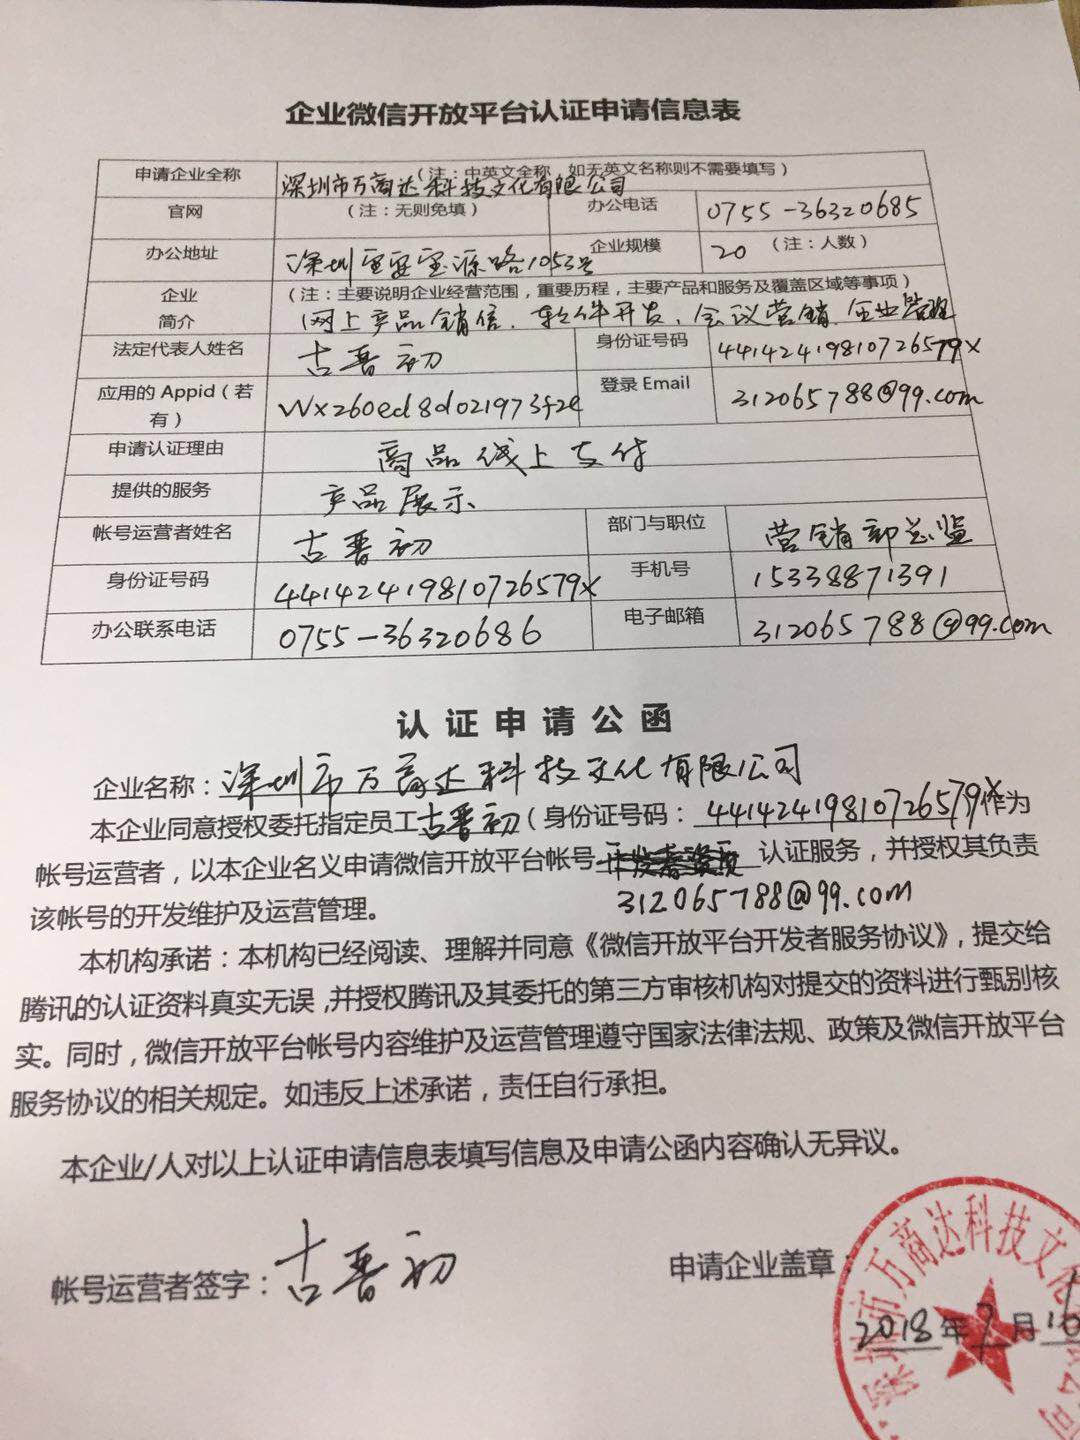 企业微信开放平台认证申请信息表
申请企业全称 (注：中英文全称，如无英文名称则不需要填写)
深圳市万商达科技文化有限公司
官网 (注：无则免填) 办公电话 0755-36320685
办公地址 深圳宝安宝源路1053号 企业规模 20 (注：人数)
企业 (注：主要说明企业经营范围，重要历程，主要产品和服务及覆盖区域等事项)
简介 网上产品销售、软件开发、会议营销、企业管理
法定代表人姓名 古晋初 身份证号码 44142419810726579X
应用的 Appid（若 wx260ed8d021973f2e 登录 Email 312065788@99.com
有）
申请认证理由 商品线上支付
提供的服务 产品展示、
帐号运营者姓名 古晋初 部门与职位 营销部总监
身份证号码 44142419810726579X 手机号 15338871391
办公联系电话 0755-36320686 电子邮箱 312065788@99.com
认证申请公函
企业名称：深圳市万商达科技文化有限公司
本企业同意授权委托指定员工古晋初（身份证号码：44142419810726579X作为
帐号运营者，以本企业名义申请微信开放平台帐号 认证服务，并授权其负责
该帐号的开发维护及运营管理。 312065788@99.com
本机构承诺：本机构已经阅读、理解并同意《微信开放平台开发者服务协议》，提交给
腾讯的认证资料真实无误，并授权腾讯及其委托的第三方审核机构对提交的资料进行甄别核
实。同时，微信开放平台帐号内容维护及运营管理遵守国家法律法规、政策及微信开放平台
服务协议的相关规定。如违反上述承诺，责任自行承担。
本企业/人对以上认证申请信息表填写信息及申请公函内容确认无异议。
帐号运营者签字：古晋初 申请企业盖章：
深圳市万商达科技文化 公司
2018年7月